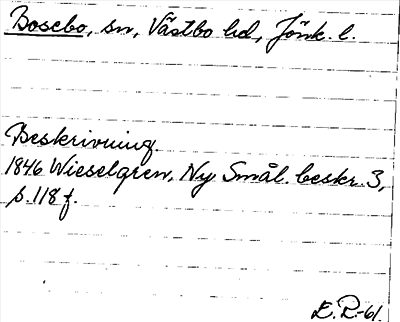 Bosebo, sn, Västbo hd, Jönk. l.
Beskrivning.
1846 Wieselgren, Ny Smål. beskr. 3,
s. 118 f.
E. R-61.